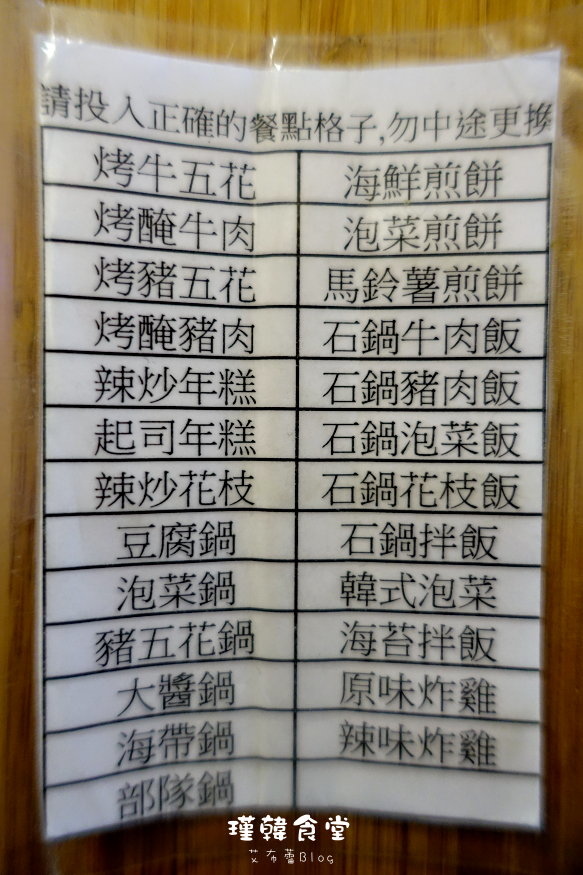 請投入正確的餐點格子,勿中途更換
烤牛五花 海鮮煎餅
烤醃牛肉 泡菜煎餅
烤豬五花 馬鈴薯煎餅
烤醃豬肉 石鍋牛肉飯
辣炒年糕 石鍋豬肉飯
起司年糕 石鍋泡菜飯
辣炒花枝 石鍋花枝飯
豆腐鍋 石鍋拌飯
泡菜鍋 韓式泡菜
豬五花鍋 海苔拌飯
大醬鍋 原味炸雞
海帶鍋 辣味炸雞
部隊鍋
瑾韓食堂
艾布蕾Blog